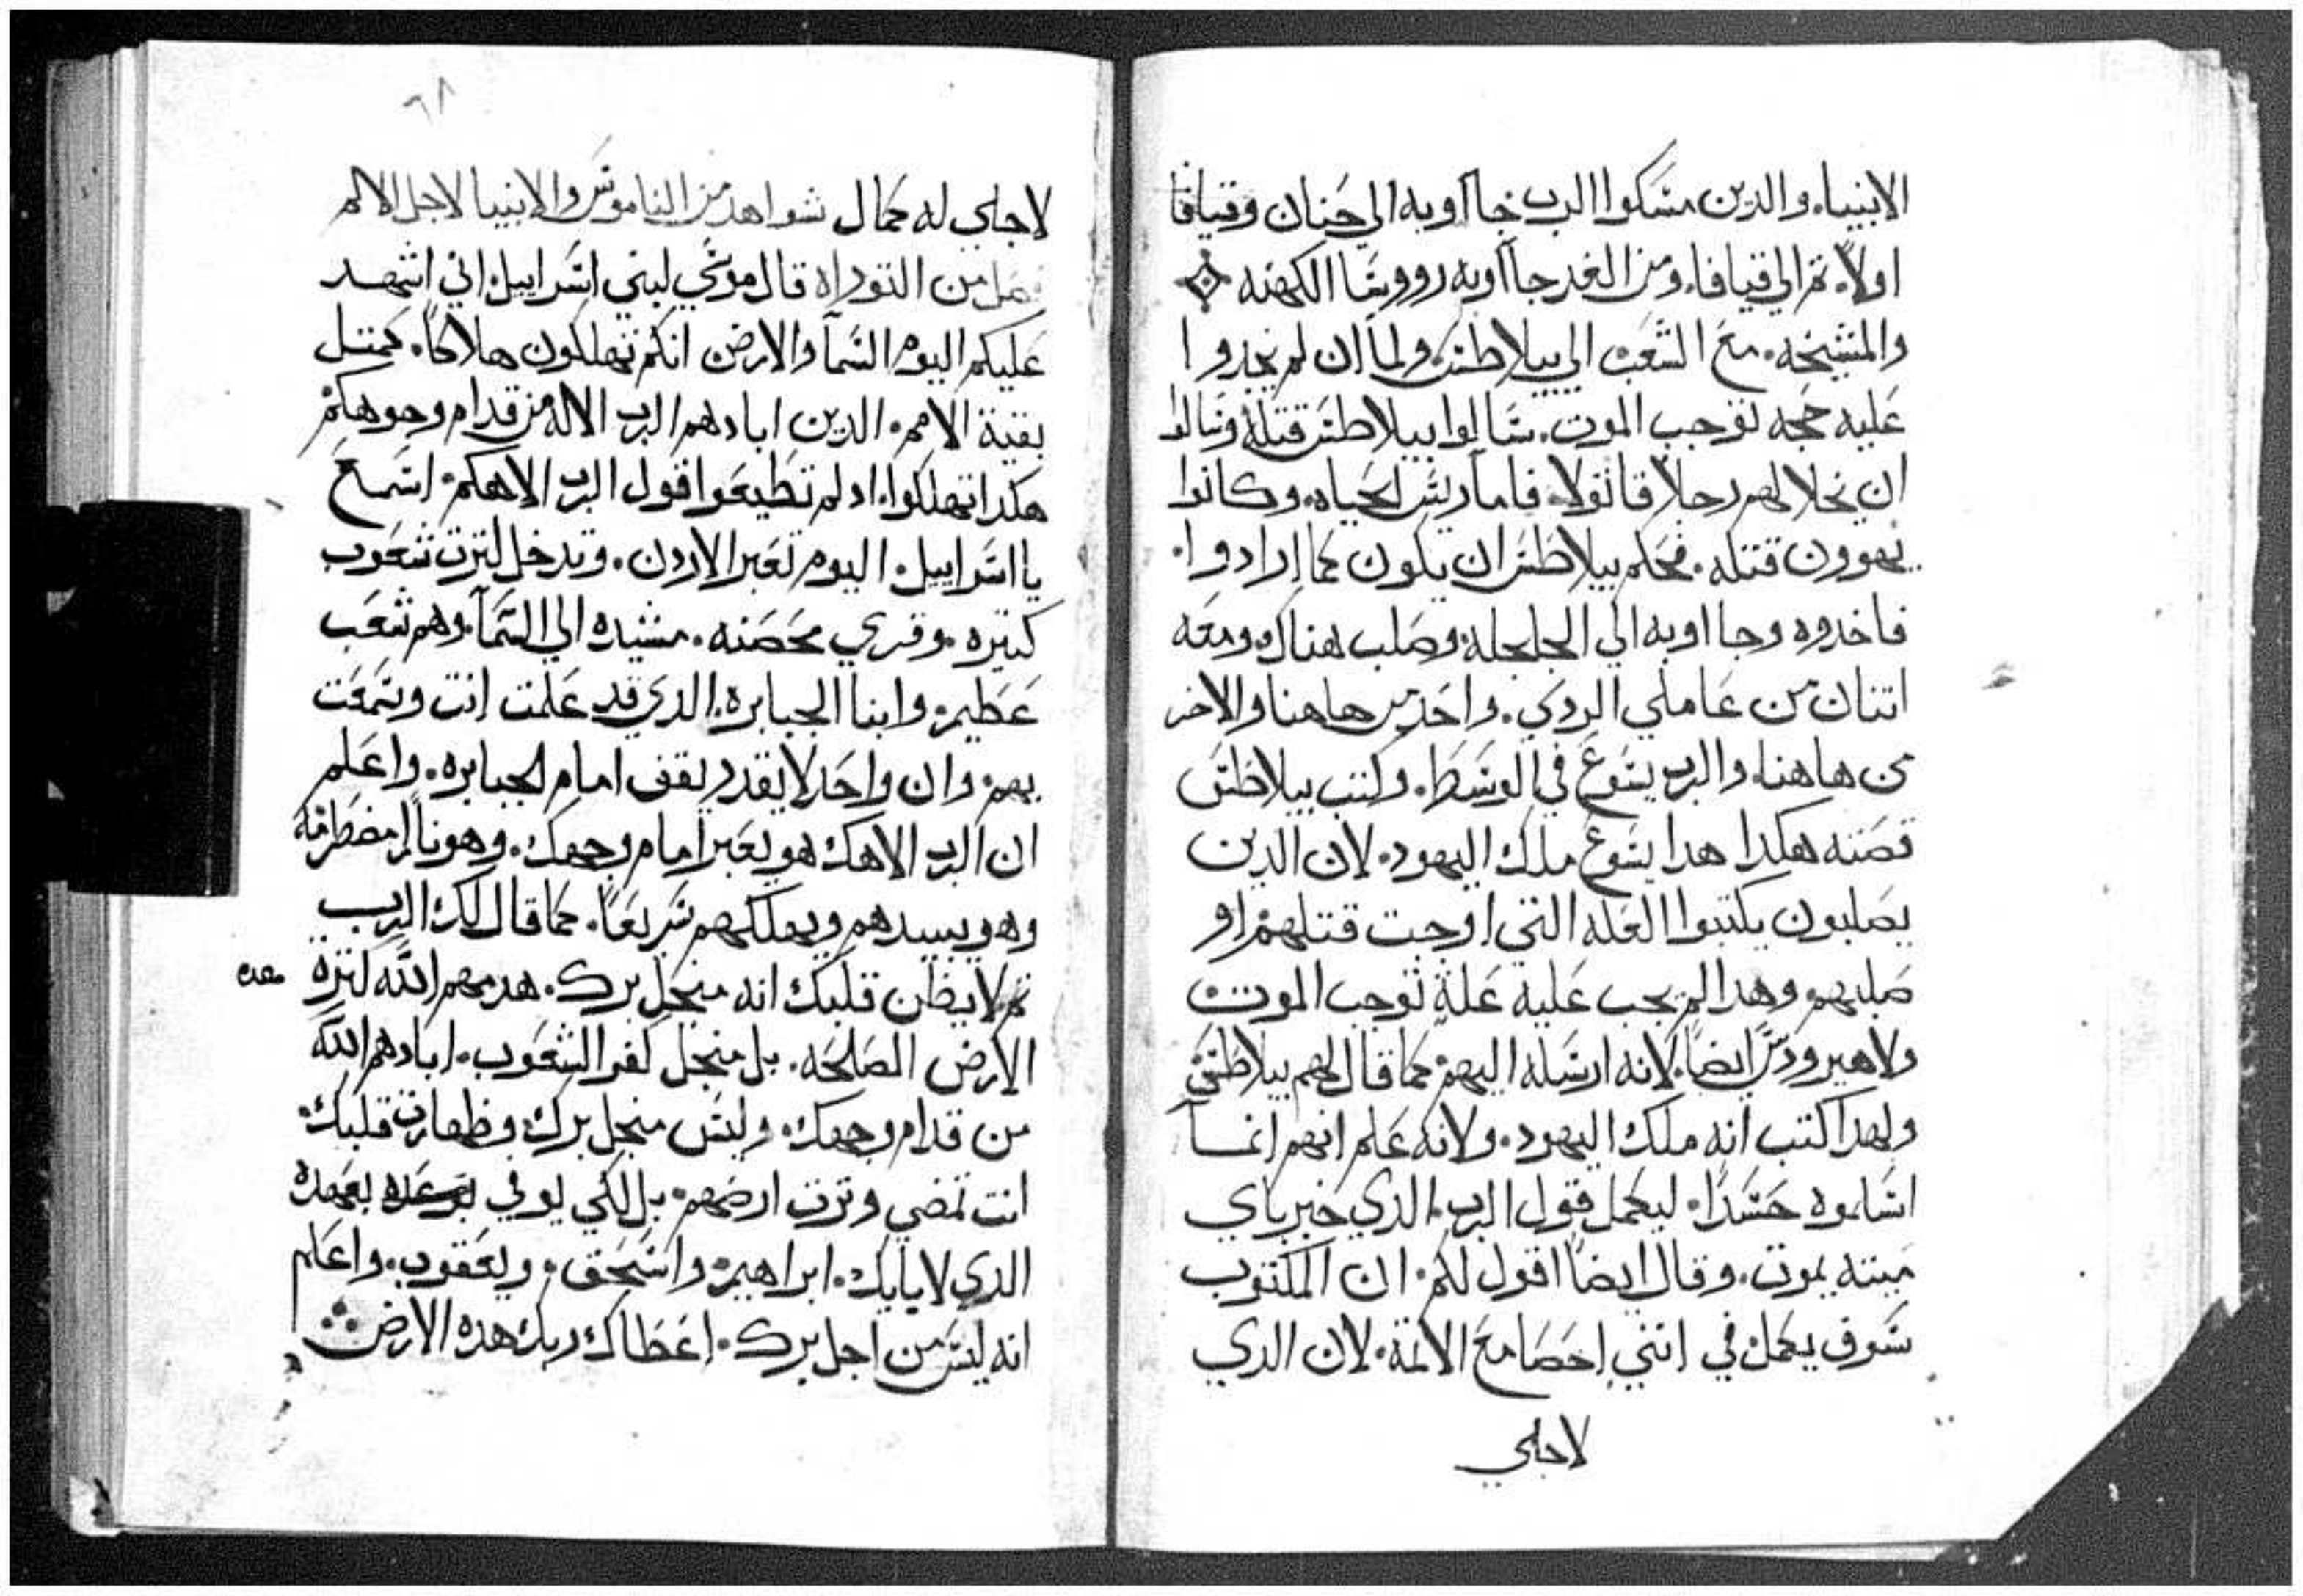 الانبياء. والدين مسكوا الرب جاا وبه الي حنان وقيافا
اولاً. تم الي قيافا. ومن الغد جااوبه رووسا الكهنه
والمشيخه. مع الشعب الي بيلاطس. ولما ان لم يجدوا
عليه حجه توجب الموت. سالوا بيلاطس قتله وسالوا
ان يخلا لهم رجلاً قاتولا. فاما ريس الحياه. وكانوا
يهوون قتله. فحكم بيلاطس ان يكون كما ارادوا.
فاخدوه وجا اوبه الي الجلجله وصلب هناك. ومعه
اتنان من عاملي الردي. واحد من هاهنا والاخر
من هاهنا. والرب يسوع في الوسط. وكتب بيلاطس
قصته هكدا هدا يسوع ملك اليهود. لان الدين
يصلبون يكتبوا العله التي اوجبت قتلهم او
صلبهم وهدا لم يجب عليه علة توجب الموت
ولا هيرودس ايضاً. لانه ارسله اليهم كما قال لهم بيلاطس
ولهدا كتب انه ملك اليهود. ولانه علم انهم انما
اسلموه حسداً. ليكمل قول الرب. الدي خبر باي
ميته يموت. وقال ايضاً اقول لكم. ان المكتوب
سوف يكمل في انني احصا مع الاتمة. لان الدي
لاجلي
٦٨
لاجلي له كمال شواهد من الناموس والانبيا لاجل الالم
فصل من التوراه قال موسي لبني اسراييل اني اشهد
عليكم اليوم السمآ والارض انكم تهلكون هلاكاً. كمتل
بقية الامم. الدين ابادهم الرب الاله من قدام وجوهكم
هكدا تهلكوا. اد لم تطيعوا قول الرب الاهكم. اسمع
يا اسراييل. اليوم تعبر الاردن. وتدخل لترت شعوب
كتيره. وقري محصنه. مشيده الي السمآ. وهم شعب
عظيم. وابنا الجبابره. الدي قد علمت انت وسمعت
بهم. وان واحد لا يقدر يقف امام الجبابره. واعلم
ان الرب الاهك هو يعبر امام وجهك. وهو نار مضطرمة
وهو يبيدهم ويهلكهم سريعاً. كما قال لك الرب
تم لا يظن قلبك انه منجل برك. هدمهم الله لترة هده
الارض الصالحه. بل منجل كفر الشعوب. ابادهم الله
من قدام وجهك. وليس منجل برك وطهارت قلبك
انت تمضي وترت ارضهم. بل لكي يوفي بوعده بعهده
الدي لابايك. ابراهيم. واسحق. ويعقوب. واعلم
انه ليس من اجل برك. اعطاك ربك هده الارض